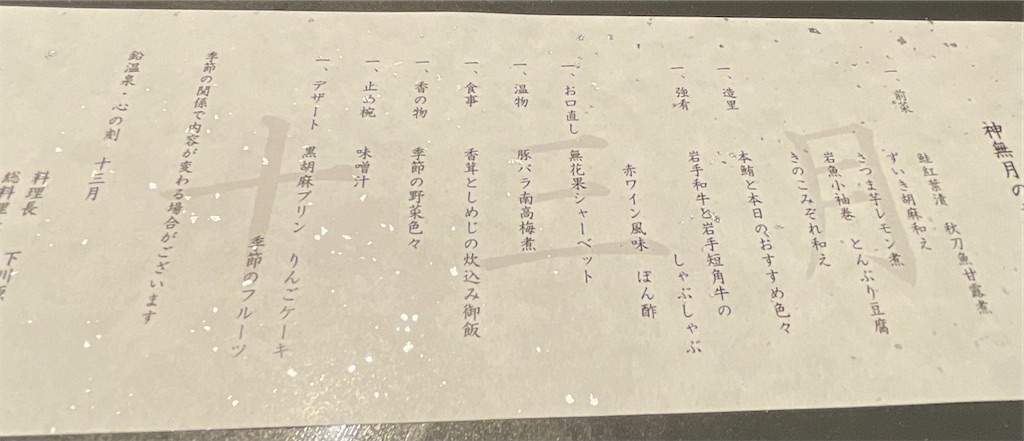 神無月の
一、前菜
鮭紅葉漬 秋刀魚甘露煮
ずいき胡麻和え
さつま芋レモン煮
岩魚小袖巻 とんぶり豆腐
きのこみぞれ和え
一、造里
本鮪と本日のおすすめ色々
一、強肴
岩手和牛と岩手短角牛の
しゃぶしゃぶ
赤ワイン風味 ぽん酢
一、お口直し 無花果シャーベット
一、温物 豚バラ南高梅煮
一、食事 香茸としめじの炊込み御飯
一、香の物 季節の野菜色々
一、止め椀 味噌汁
一、デザート 黒胡麻プリン りんごケーキ
季節のフルーツ
季節の関係で内容が変わる場合がございます
鉛温泉・心の刻 十三月
料理長
総料理 下川原
十三月